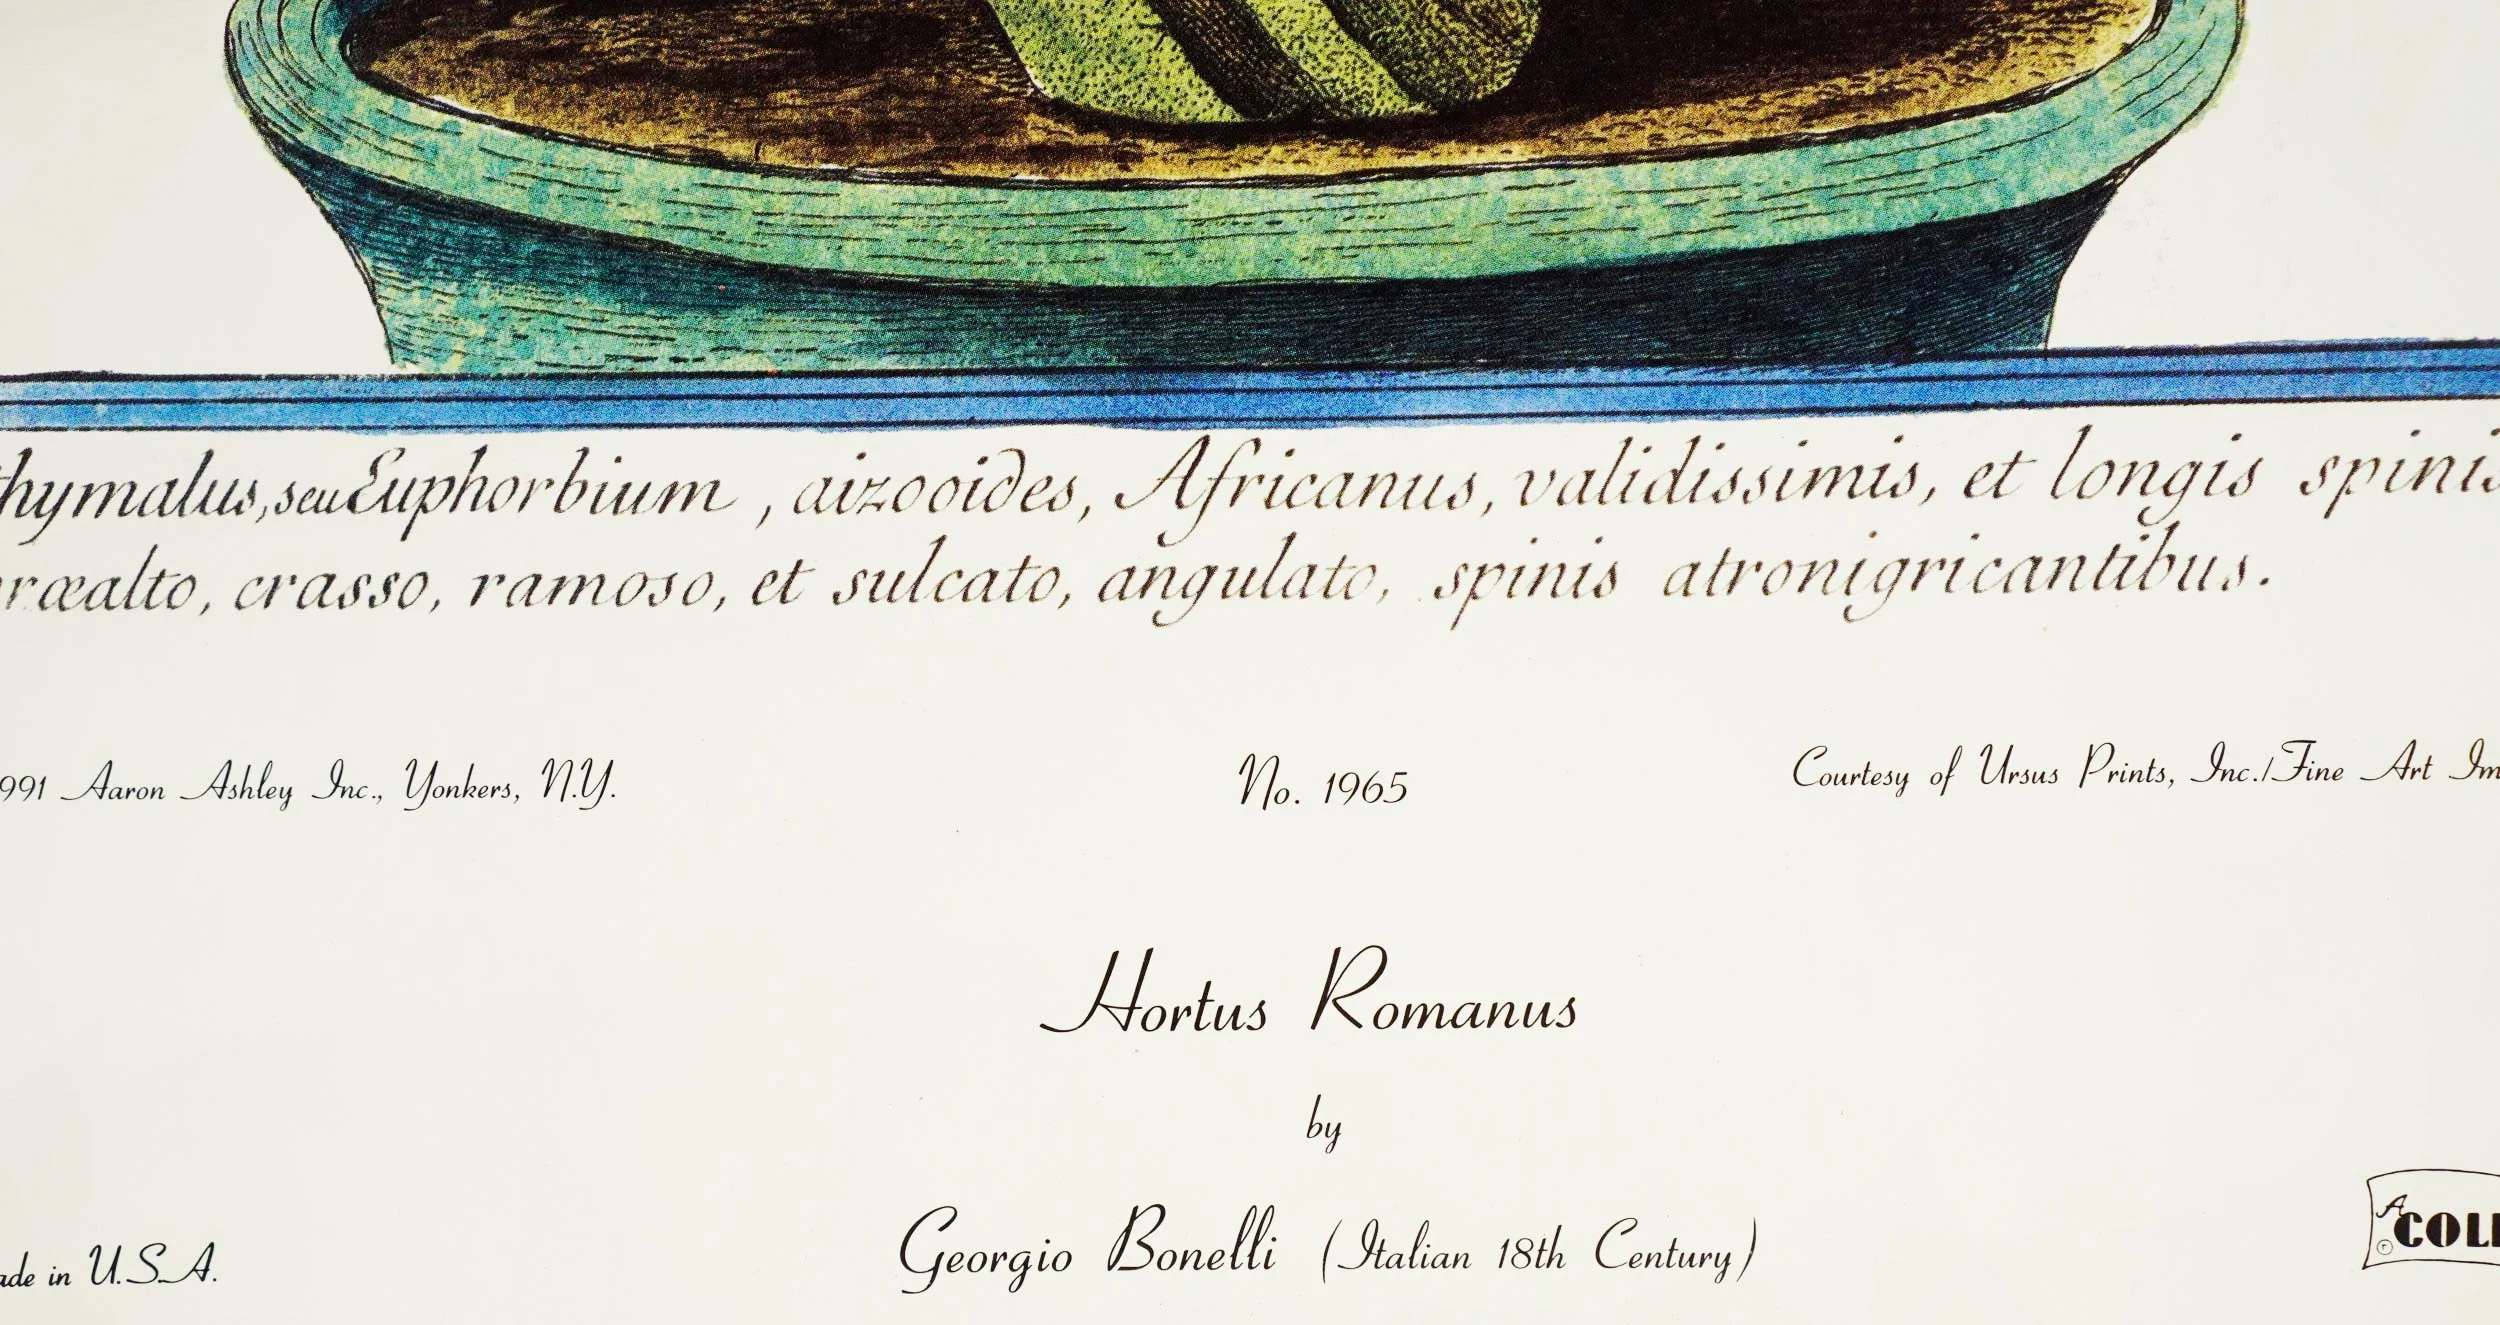 thymalus, seu Euphorbium, aizooides, Africanus, validissimis, et longis spinis
præalto, crasso, ramoso, et sulcato, angulato, spinis atronigricantibus.
1991 Aaron Ashley Inc., Yonkers, N.Y.
No. 1965
Courtesy of Ursus Prints, Inc./Fine Art Im
Hortus Romanus
by
Georgio Bonelli (Italian 18th Century)
ade in U.S.A.
A COLL